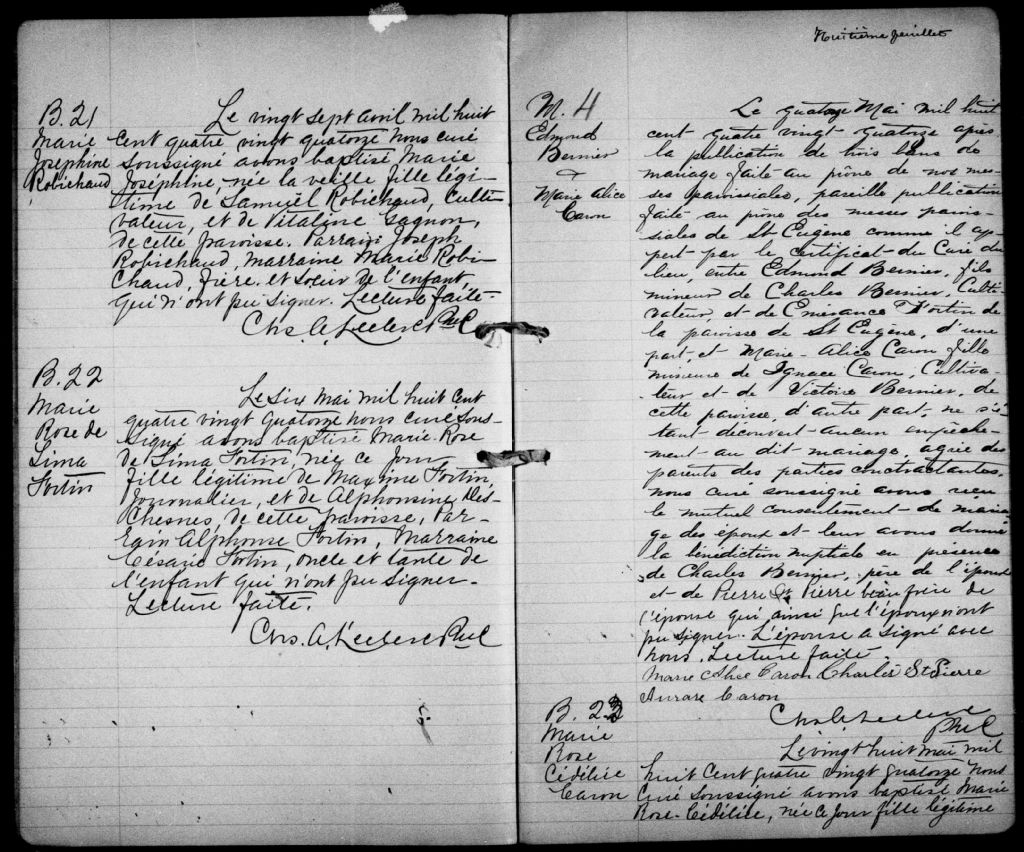 B. 21
Marie
Josephine
Robichaud
Le vingt sept avril mil huit
cent quatre vingt quatorze nous curé
soussigné avons baptisé Marie
Joséphine, née la veille fille légi-
time de Samuel Robichaud, Culti-
vateur, et de Vitaline Gagnon,
de cette paroisse. Parrain Joseph
Robichaud, Marraine Marie Robi-
chaud, frère et soeur de l'enfant
qui n'ont pu signer. Lecture faite.
Chs. A. Leclerc Ptre C
B. 22
Marie
Rose de
Lima
Fortin
Le six mai mil huit cent
quatre vingt quatorze nous curé sous-
signé avons baptisé Marie Rose
de Lima Fortin, née ce jour
fille légitime de Maxime Fortin,
Journalier, et de Alphonsine Des-
Chesnes, de cette paroisse, Par-
rain Alphonse Fortin, Marraine
Césarie Fortin, oncle et tante de
l'enfant qui n'ont pu signer.
Lecture faite.
Chs. A. Leclerc Ptre C
Huitième feuillet
M. 4
Edmond
Bernier
&
Marie Alice
Caron
Le quatorze Mai mil huit
cent quatre vingt quatorze après
la publication de trois bans de
mariage faite au prône de nos mes-
ses paroissiales, pareille publication
faite au prône des messes parois-
siales de St Eugène comme il ap-
pert par le certificat du Curé du
lieu, entre Edmond Bernier, fils
mineur de Charles Bernier, Culti-
vateur, et de Emerance Fortin de
la paroisse de St Eugène, d'une
part, et Marie-Alice Caron fille
mineure de Ignace Caron, Cultiva-
teur et de Victoire Bernier, de
cette paroisse, d'autre part, ne s'é-
tant découvert aucun empêche-
ment au dit mariage, agréé des
parents des parties contractantes,
nous curé soussigné avons reçu
le mutuel consentement de maria-
ge des époux et leur avons donné
la bénédiction nuptiale en présence
de Charles Bernier, père de l'époux
et de Pierre St Pierre beau frère de
l'épouse qui ainsi que l'époux n'ont
pu signer. L'épouse a signé avec
nous. Lecture faite.
Marie Alice Caron Charles St Pierre
Aurore Caron
Chs. A. Leclerc
Ptre C
B. 23
Marie
Rose
Cédélice
Caron
Le vingt huit mai mil
huit cent quatre vingt quatorze nous
curé soussigné avons baptisé Marie
Rose-Cédélice, née ce jour fille légitime